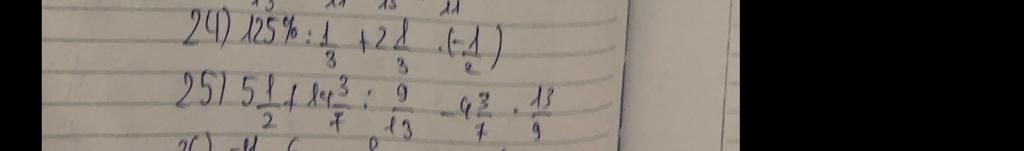 24) 125% : 1/3 + 2 1/3 . (-1/2)
25) 5 1/2 + 14 3/7 : 9/13 - 4 3/7 . 13/9